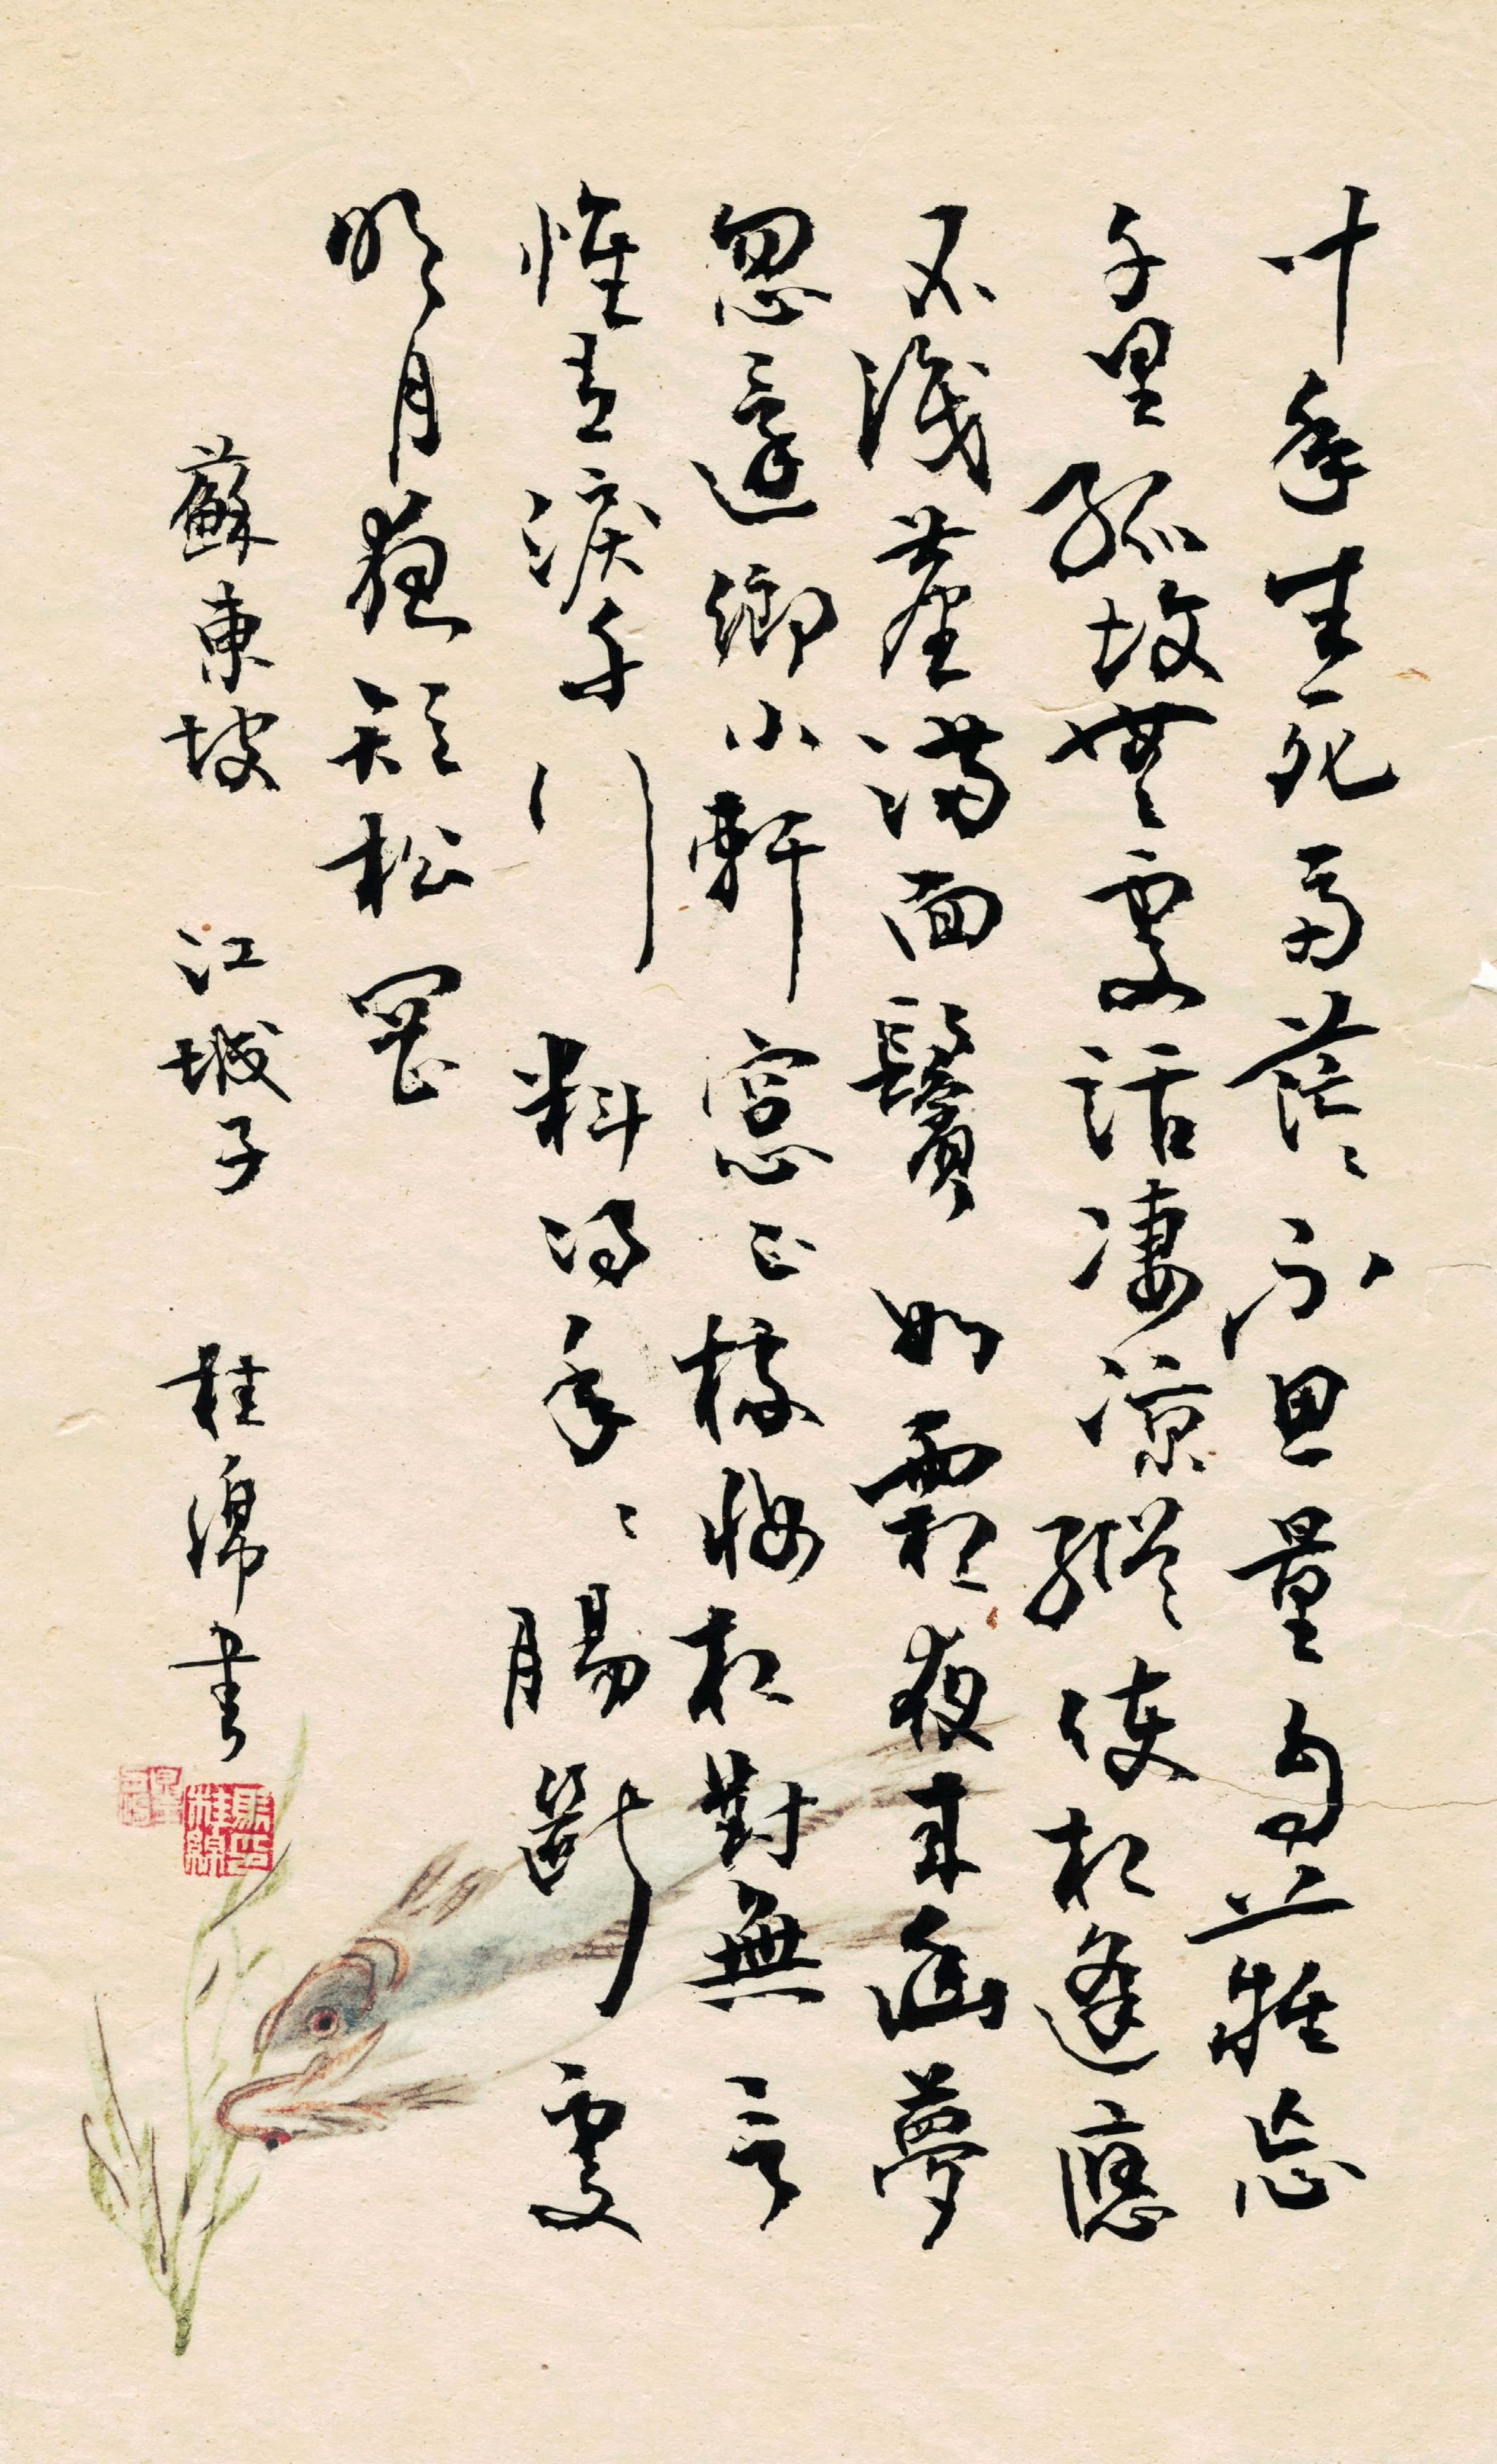 十年生死兩茫茫不思量自難忘
千里孤墳無處話凄凉縱使相逢應
不識塵滿面鬢如霜夜來幽夢
忽還鄉小軒窓正梳妝相對無言
惟有淚千行料得年年腸斷處
明月夜短松岡
蘇東坡 江城子 桂綿書